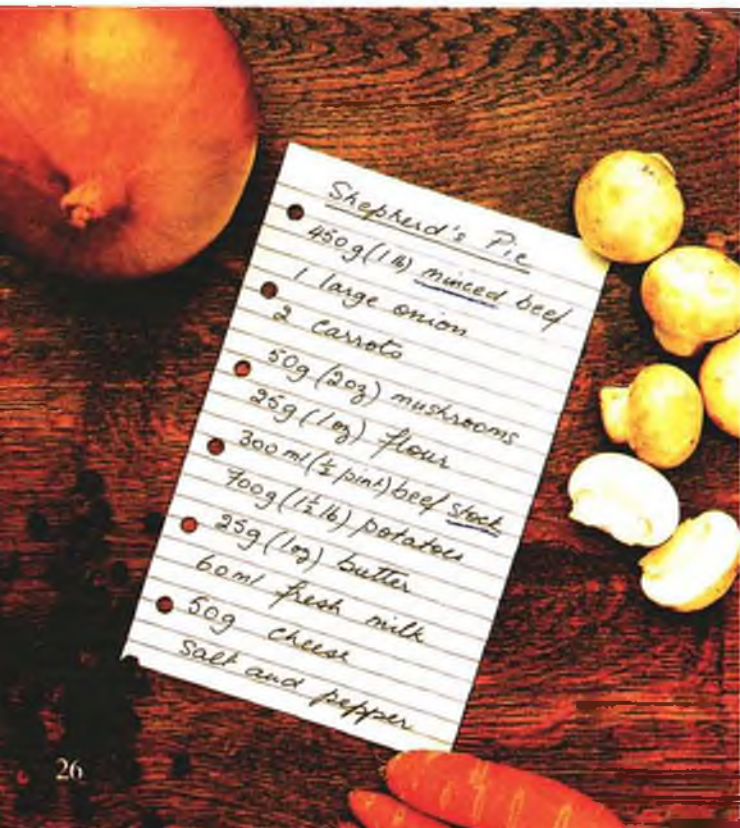 Shepherd's Pie
450g (1 lb) minced beef
1 large onion
2 carrots
50g (2oz) mushrooms
25g (1oz) flour
300 ml (½ pint) beef stock
700g (1½ lb) potatoes
25g (1oz) butter
60ml fresh milk
50g cheese
Salt and pepper
26